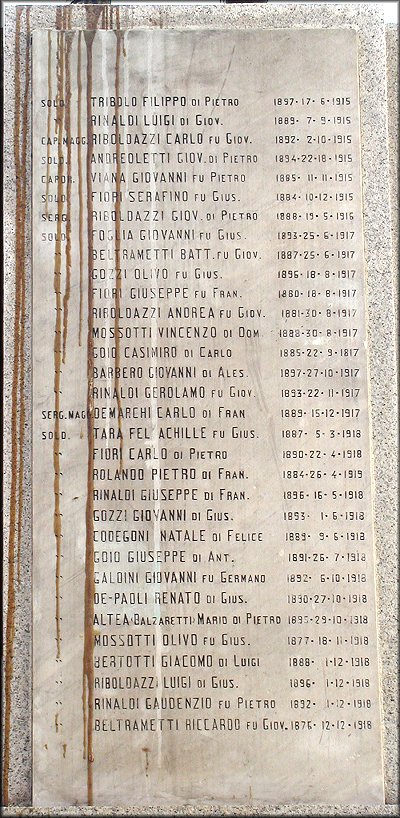 SOLD. TRIBOLO FILIPPO DI PIETRO 1897·17·6·1915
" RINALDI LUIGI DI GIOV. 1889·7·9·1915
CAP.MAGG. RIBOLDAZZI CARLO FU GIOV. 1892·2·10·1915
SOLD. ANDREOLETTI GIOV. DI PIETRO 1894·22·18·1915
CAPOR. VIANA GIOVANNI FU PIETRO 1885·11·11·1915
SOLD. FIORI SERAFINO FU GIUS. 1884·10·12·1915
SERG. RIBOLDAZZI GIOV. DI PIETRO 1888·19·5·1916
SOLD. FOGLIA GIOVANNI FU GIUS. 1893·25·6·1917
" BELTRAMETTI BATT. FU GIOV. 1887·25·6·1917
" GOZZI OLIVO FU GIUS. 1896·18·8·1917
" FIORI GIUSEPPE FU FRAN. 1880·18·8·1917
" RIBOLDAZZI ANDREA FU GIOV. 1881·30·8·1917
" MOSSOTTI VINCENZO DI DOM 1888·30·8·1917
" GOIO CASIMIRO DI CARLO 1885·22·9·1817
" BARBERO GIOVANNI DI ALES. 1897·27·10·1917
" RINALDI GEROLAMO FU GIOV. 1893·22·11·1917
SERG.MAGG. DEMARCHI CARLO DI FRAN 1889·15·12·1917
SOLD. TARA FEL ACHILLE FU GIUS. 1887·5·3·1918
" FIORI CARLO DI PIETRO 1890·22·4·1918
" ROLANDO PIETRO DI FRAN. 1884·26·4·1919
" RINALDI GIUSEPPE DI FRAN. 1896·16·5·1918
" GOZZI GIOVANNI DI GIUS. 1893·1·6·1918
" CODEGONI NATALE DI FELICE 1889·9·6·1918
" GOIO GIUSEPPE DI ANT. 1891·26·7·1918
" GALDINI GIOVANNI FU GERMANO 1892·6·10·1918
" DE-PAOLI RENATO DI GIUS. 1890·27·10·1918
" ALTEA BALZARETTI MARIO DI PIETRO 1895·29·10·1918
" MOSSOTTI OLIVO FU GIUS. 1877·18·11·1918
" BERTOTTI GIACOMO DI LUIGI 1888·1·12·1918
" RIBOLDAZZI LUIGI DI GIUS. 1896·1·12·1918
" RINALDI GAUDENZIO FU PIETRO 1892·1·12·1918
" BELTRAMETTI RICCARDO FU GIOV. 1876·12·12·1918